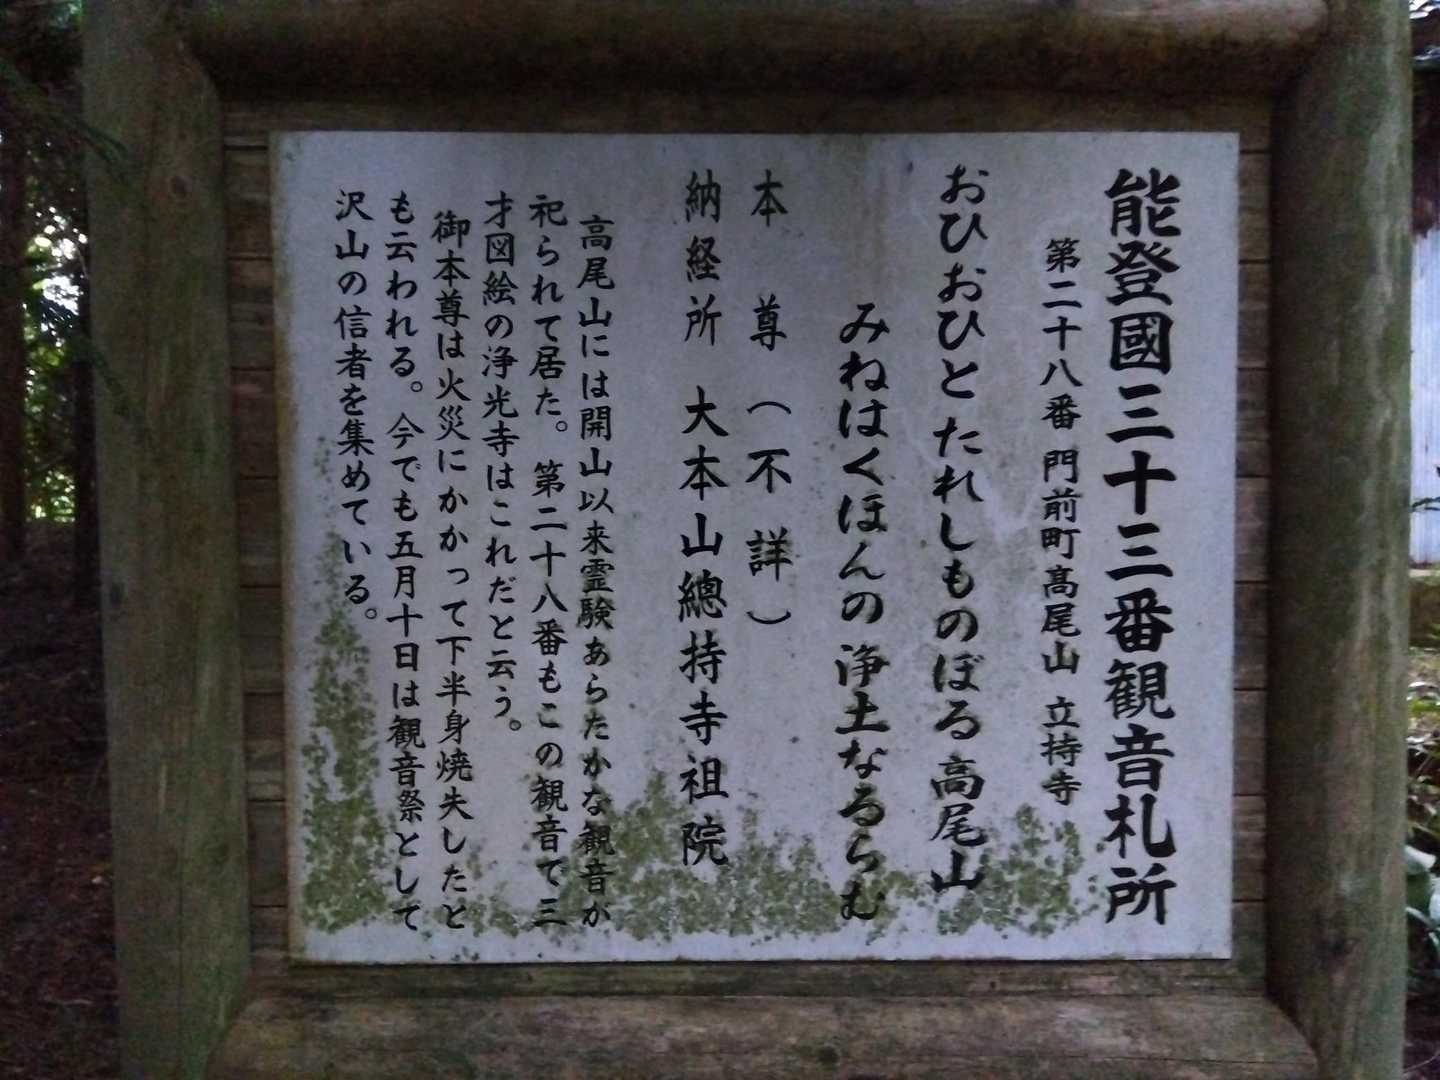 能登國三十三番観音札所
第二十八番 門前町高尾山 立持寺
おひおひと たれしものぼる高尾山
みねはくほんの 浄土なるらむ
本尊（不詳）
納経所 大本山總持寺祖院
高尾山には開山以来霊験あらたかな観音が
祀られて居た。第二十八番もこの観音で三
才図絵の浄光寺はこれだと云う。
御本尊は火災にかかって下半身焼失したと
も云われる。今でも五月十日は観音祭として
沢山の信者を集めている。